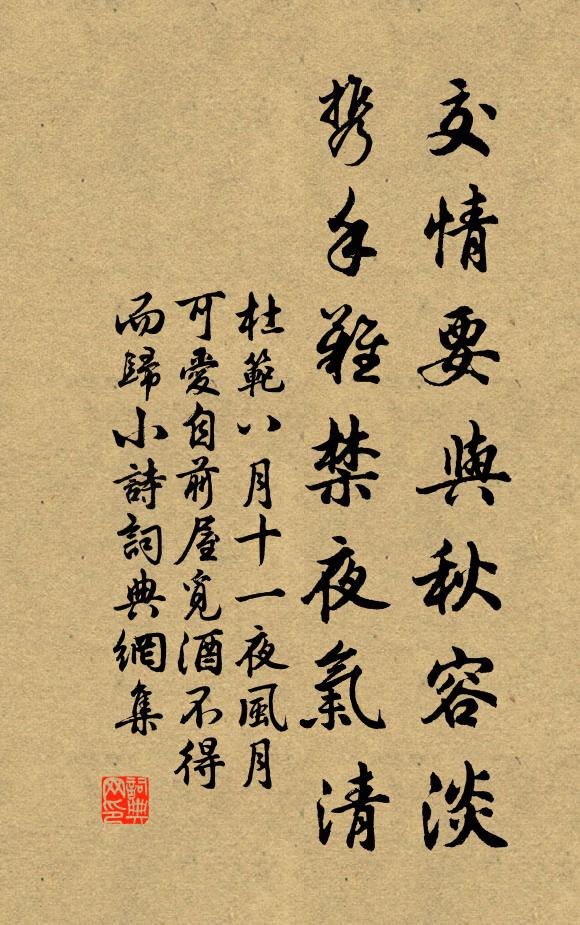 交情要與秋容淡
携手難禁夜氣清
杜範八月十一夜風月
可愛自前屋覓酒不得
而歸小詩詞典網集
詞典
网印